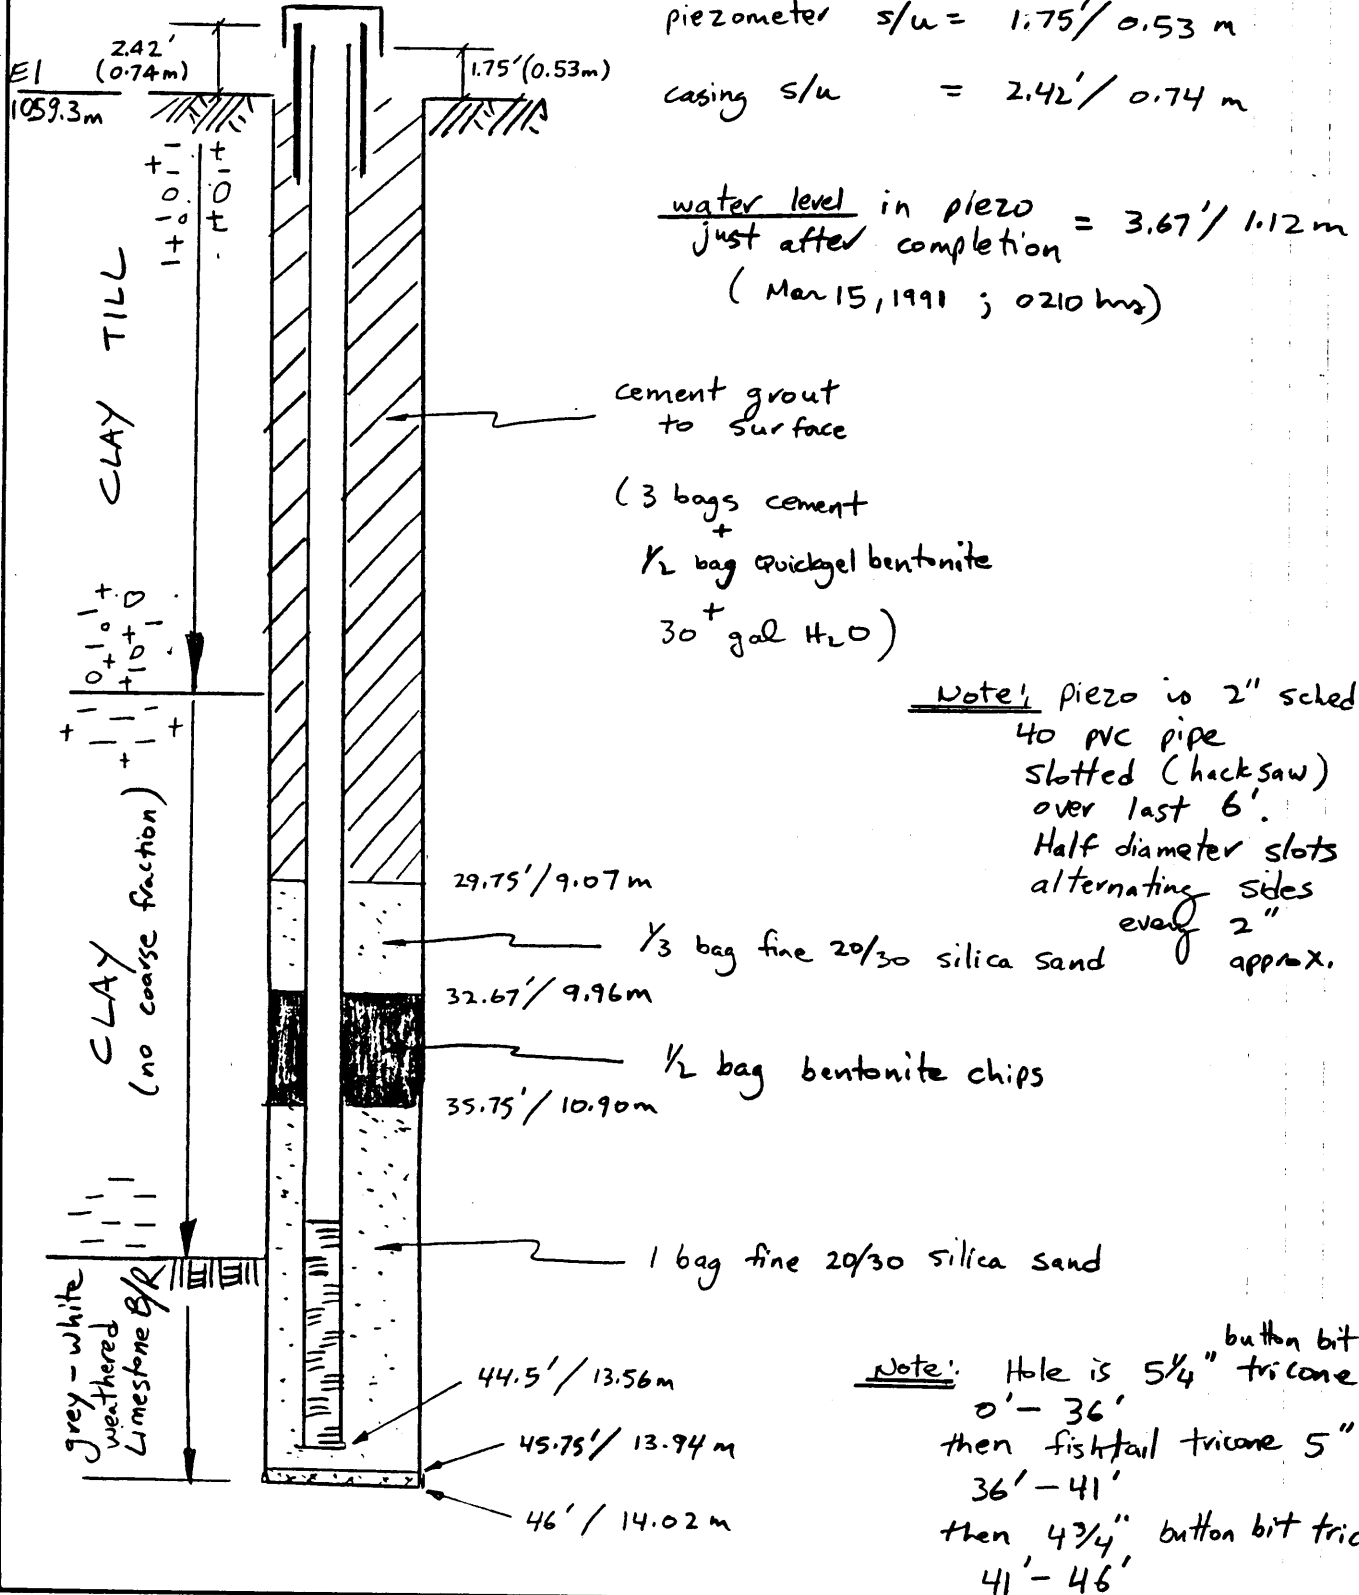 piezometer s/u = 1.75'/ 0.53 m
2.42'
(0.74m)
El
1059.3m
1.75' (0.53m)
casing s/u = 2.42'/ 0.74 m
water level in piezo
just after completion = 3.67'/ 1.12 m
( Mar 15, 1991 ; 0210 hrs)
CLAY TILL
cement grout
to surface
(3 bags cement
+
1/2 bag Quickgel bentonite
+
30 gal H2O)
Note: piezo is 2" sched
40 pvc pipe
slotted (hacksaw)
over last 6'.
Half diameter slots
alternating sides
every 2"
approx.
CLAY
(no coarse fraction)
29.75'/9.07m
1/3 bag fine 20/30 silica sand
32.67'/9.96m
1/2 bag bentonite chips
35.75'/10.90m
1 bag fine 20/30 silica sand
grey-white
weathered
Limestone B/R
44.5'/13.56m
45.75'/13.94 m
46'/14.02 m
button bit
Note: Hole is 5 1/4" tricone
0'-36'
then fishtail tricone 5"
36'-41'
then 4 3/4" button bit tric
41'-46'